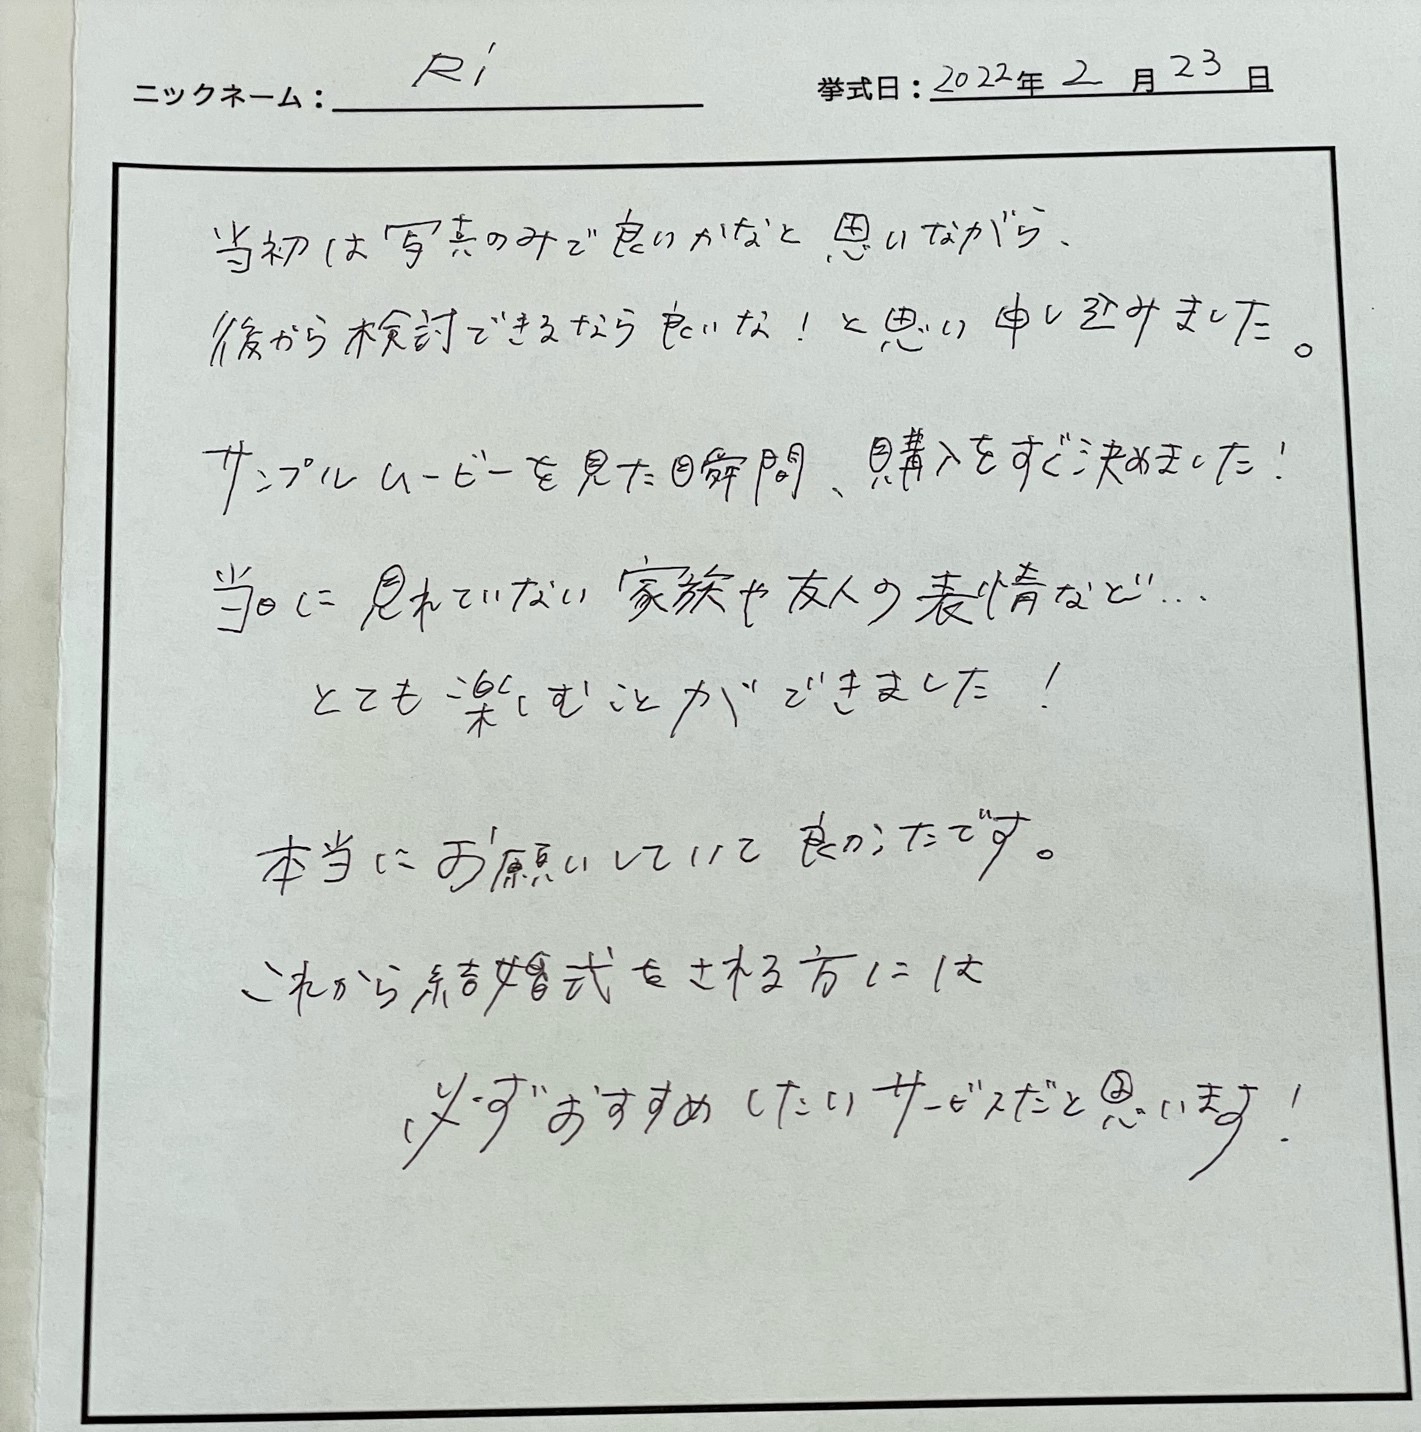 ニックネーム： Ri
挙式日：2022年 2 月 23 日
当初は写真のみで良いかなと思いながら、
後から検討できるなら良いな！と思い申し込みました。
サンプルムービーを見た瞬間、購入をすぐ決めました！
当日に見れていない家族や友人の表情など…
とても楽しむことができました！
本当にお願いしていて良かったです。
これから結婚式をされる方には
必ずおすすめしたいサービスだと思います！